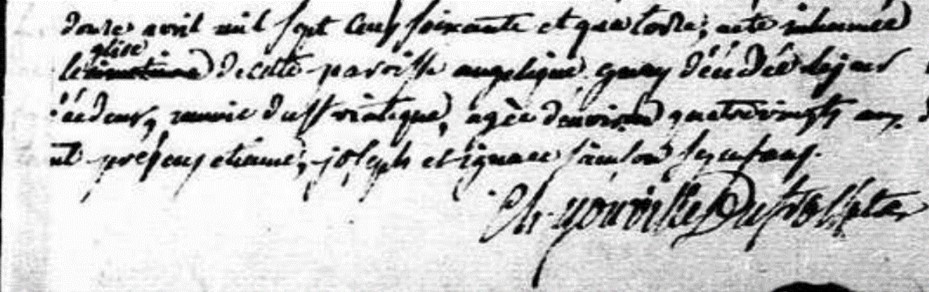 douze avril mil sept cens soixante et quatorze, a eté inhumée
glise
le cimetiere de cette paroisse angelique guay décédée le jour
cédent, munie du St viatique, agée d'environ quatrevingts ans.
nt présens etienne, joseph et ignace samson ses enfans.
Ch. Youville Dufrost ptre